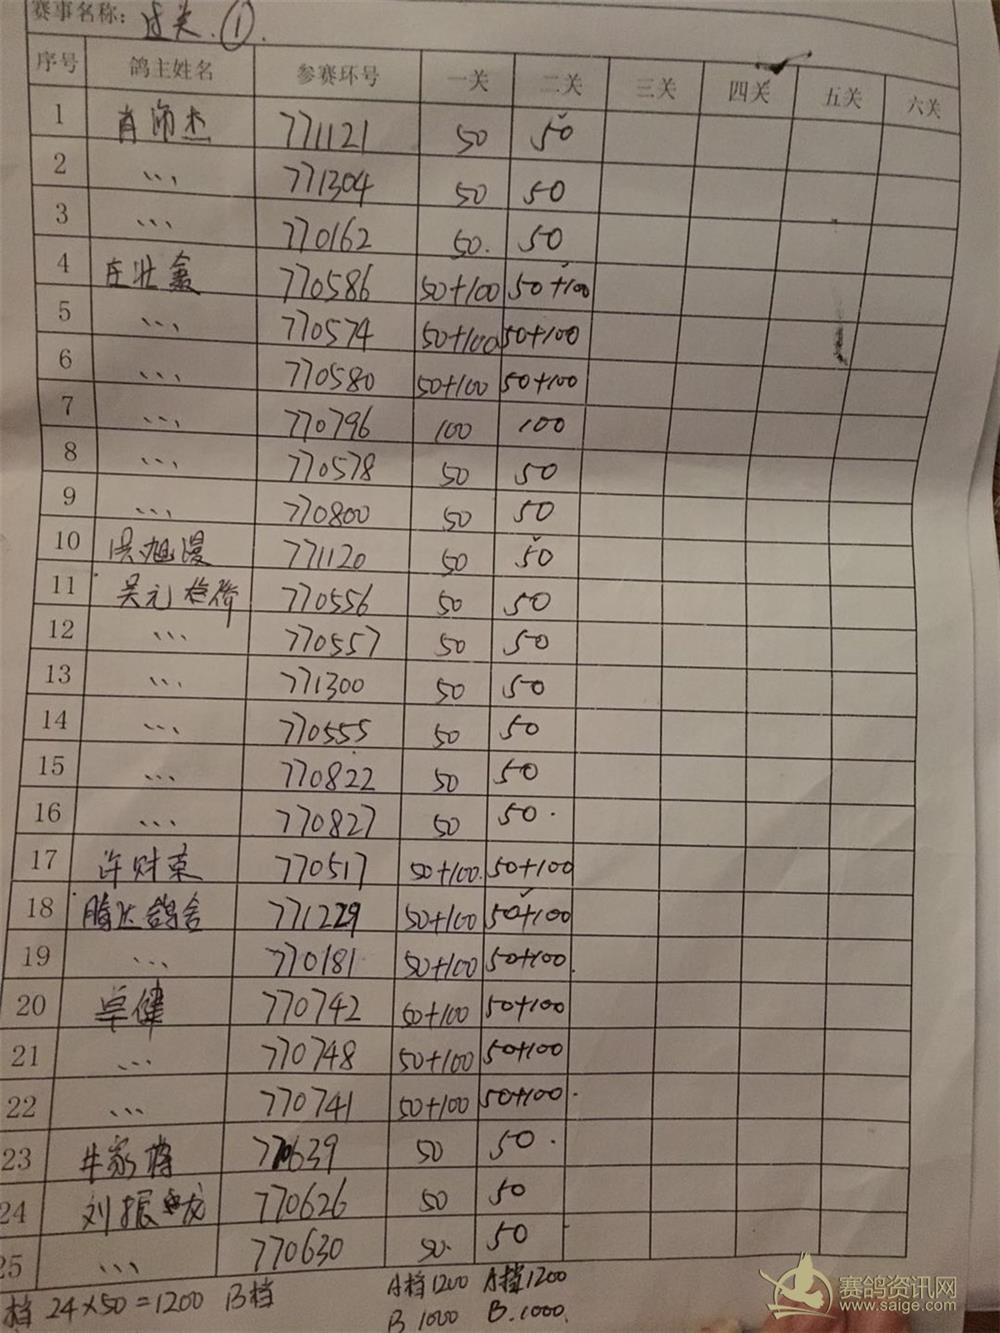 赛事名称: 过关.①.
序号 鸽主姓名 参赛环号 一关 二关 三关 四关 五关 六关
1 肖沛杰 771121 50 50
2 、、、 771304 50 50
3 、、、 770162 50. 50
4 庄壮鑫 770586 50+100 50+100
5 、、、 770574 50+100 50+100
6 、、、 770580 50+100 50+100
7 、、、 770796 100 100
8 、、、 770578 50 50
9 、、、 770800 50 50
10 洪旭漫 771120 50 50
11 吴元 770556 50 50
12 、、、 770557 50 50
13 、、、 771300 50 50
14 、、、 770555 50 50
15 、、、 770822 50 50
16 、、、 770827 50 50.
17 许财荣 770517 50+100. 50+100
18 腾达鸽舍 771229 50+100 50+100
19 、、、 770181 50+100 50+100.
20 卓健 770742 50+100 50+100
21 、、、 770748 50+100 50+100
22 、、、 770741 50+100 50+100.
23 牛家 770639 50 50.
24 刘振龙 770626 50 50
25 、、、 770630 50. 50
档 24×50=1200 B档 A档1200 A档1200
B 1000 B.1000.
赛鸽资讯网
www.saige.com